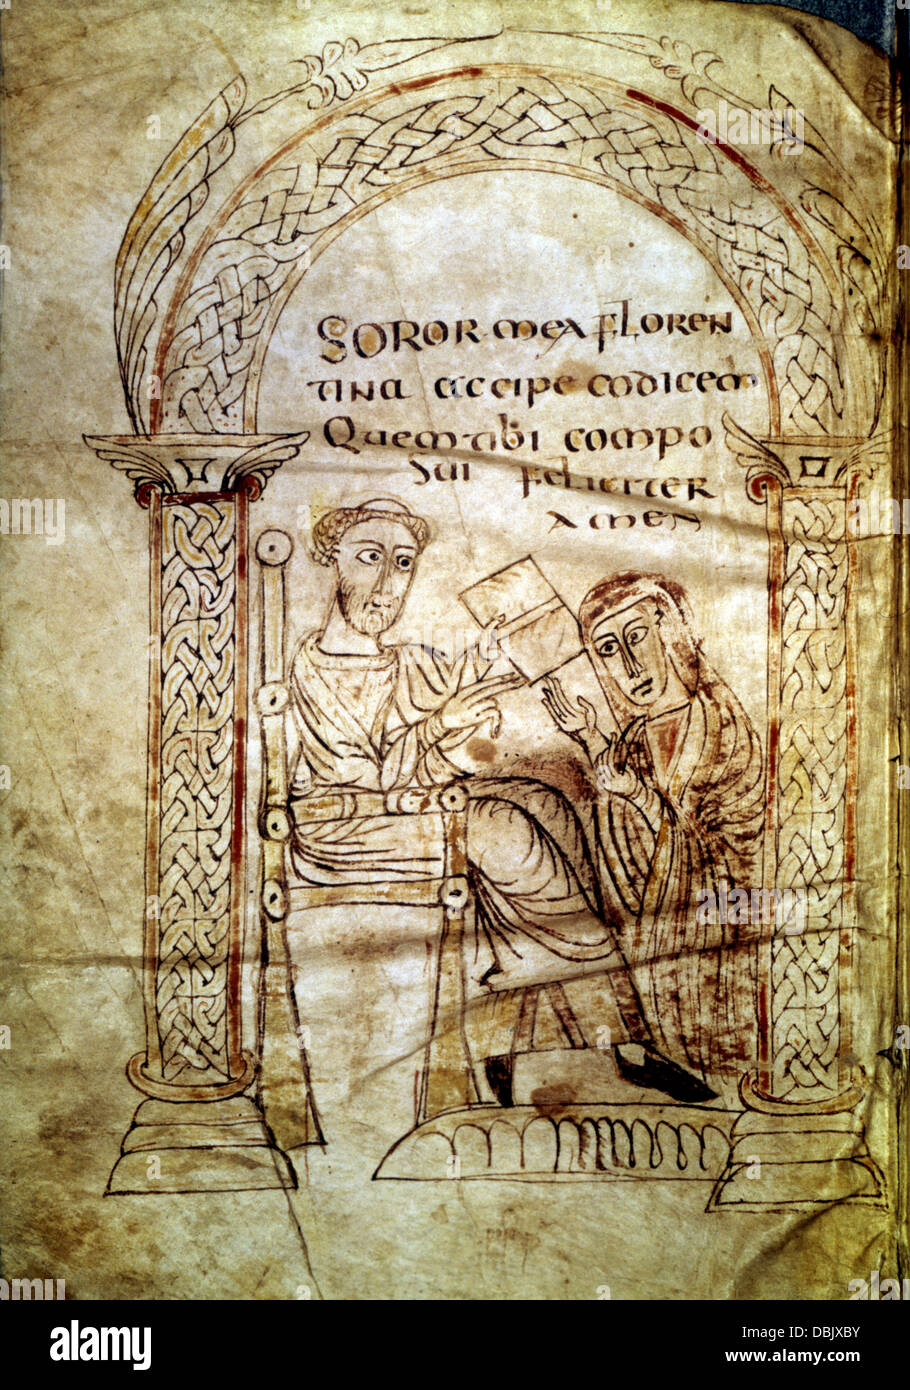 SOROR MEA FLOREN
TINA ACCIPE CODICEM
QUEM TIBI COMPO
SUI FELICITER
AMEN
alamy
Image ID: DBJXBY
www.alamy.com